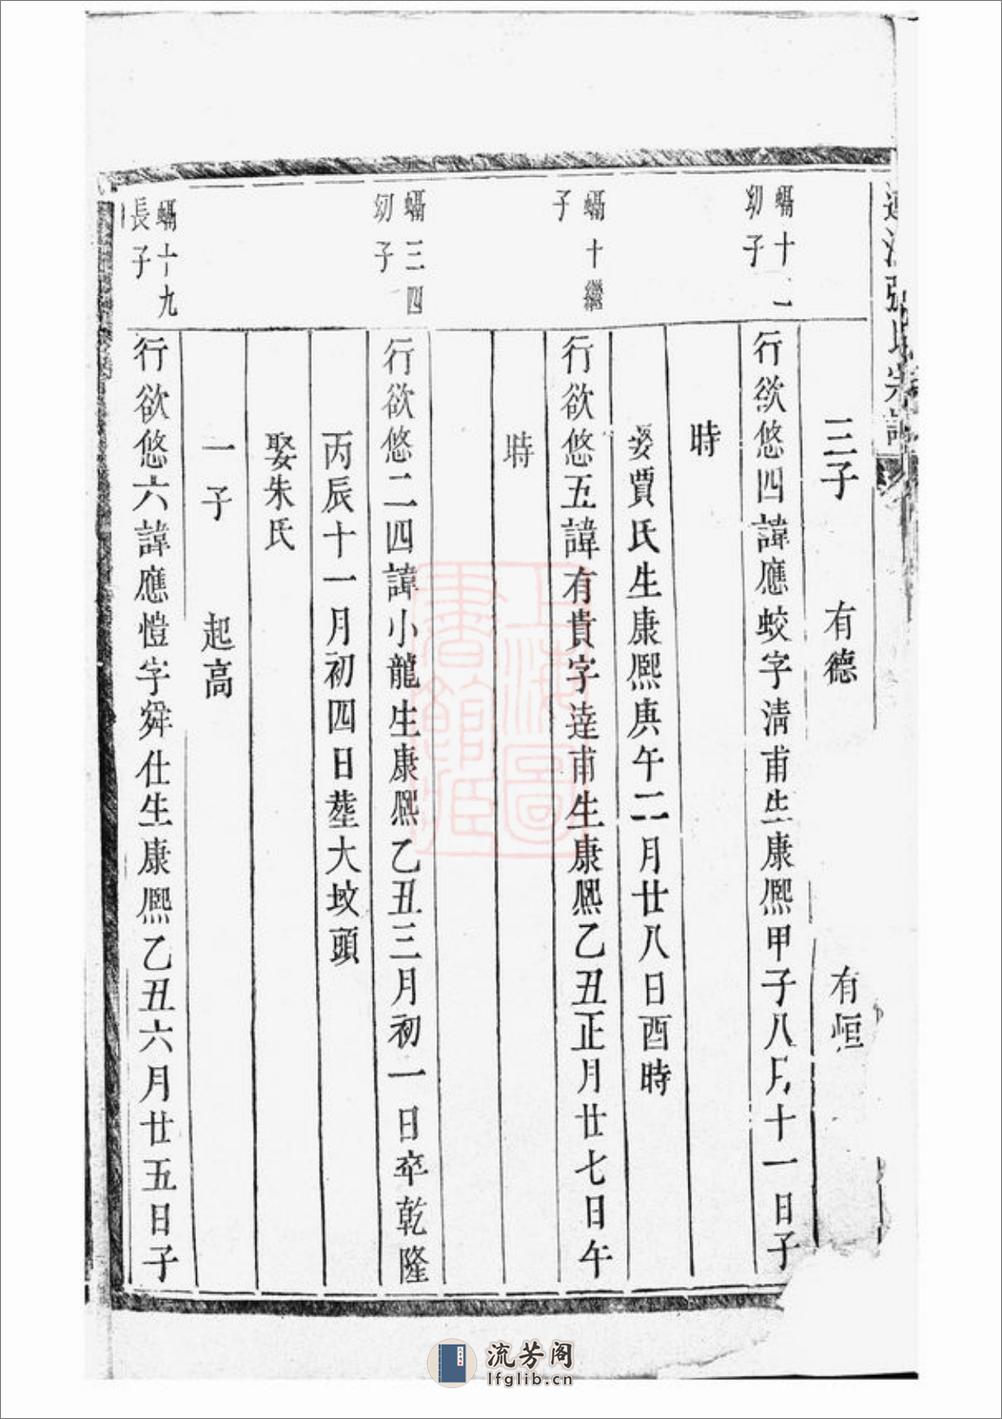 三子 有德 有恒
蟎十二
幼子
行欲悠四諱應蛟字清甫生康熙甲子八月十一日子
時
娶賈氏生康熙庚午二月廿八日酉時
蟎十繼
子
行欲悠五諱有貴字達甫生康熙乙丑正月廿七日午
時
蟎三四
幼子
行欲悠二四諱小龍生康熙乙丑三月初一日卒乾隆
丙辰十一月初四日塟大坟頭
娶朱氏
一子 起高
蟎十九
長子
行欲悠六諱應愷字舜仕生康熙乙丑六月廿五日子
上海圖
書館藏
流芳阁
lfglib.cn